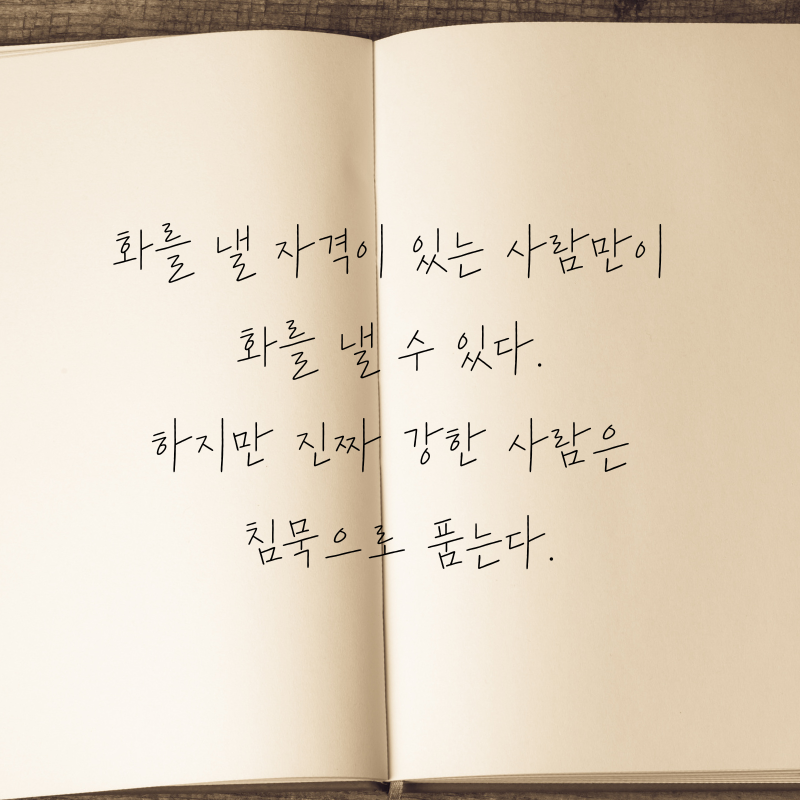 화를 낼 자격이 있는 사람만이
화를 낼 수 있다.
하지만 진짜 강한 사람은
침묵으로 품는다.